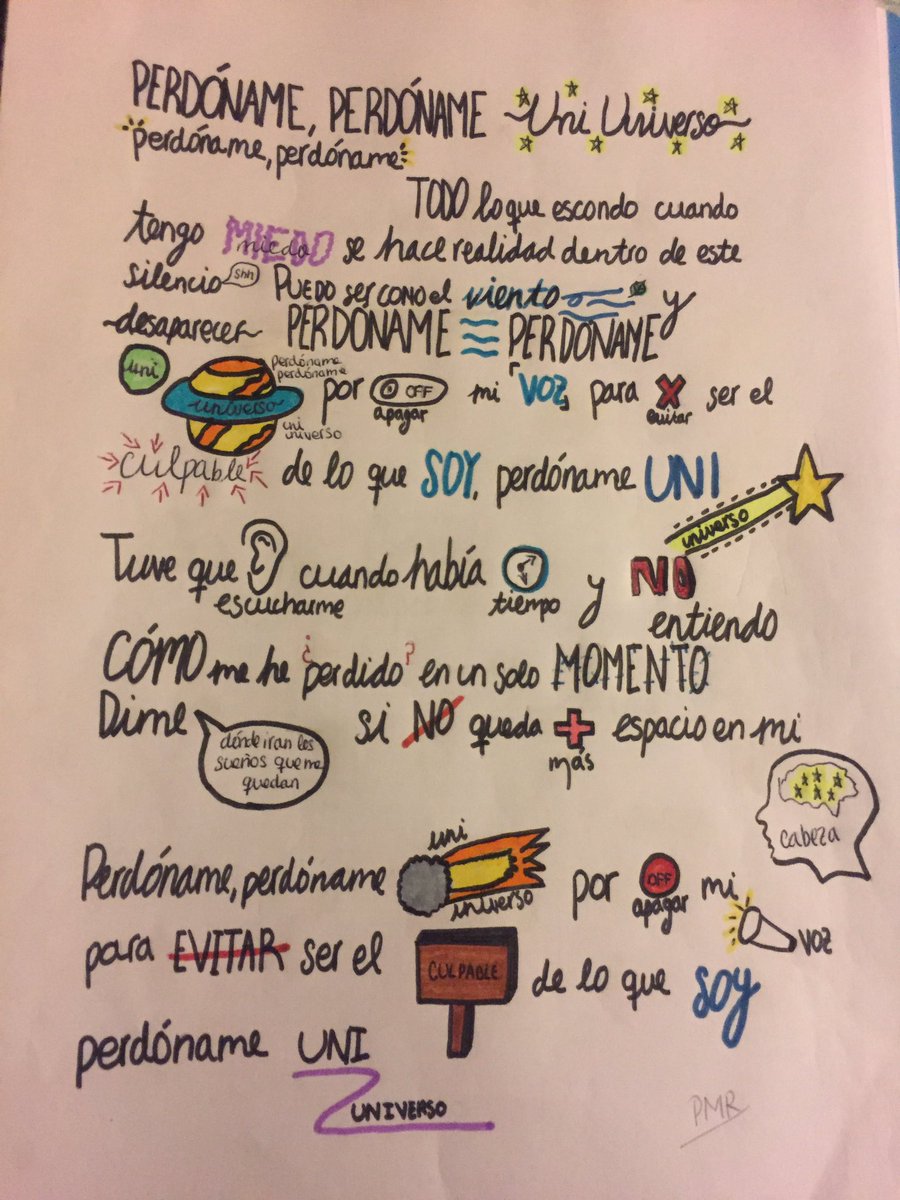 PERDÓNAME, PERDÓNAME Uni Universo
perdóname, perdóname
TODO lo que escondo cuando
tengo MIEDO miedo se hace realidad dentro de este
silencio Shh PUEDO SER COMO EL viento y
desaparecer PERDÓNAME PERDÓNAME
uni universo perdóname
perdóname
uni
universo
por OFF apagar mi "VOZ" para evitar ser el
culpable de lo que SOY, perdóname UNI
universo
Tuve que escucharme cuando había tiempo y NO
entiendo
CÓMO me he ¿perdido? en un solo MOMENTO
Dime dónde iran los
sueños que me
quedan
si NO queda más espacio en mi
cabeza
Perdóname, perdóname uni universo por OFF apagar mi
voz
para EVITAR ser el CULPABLE de lo que soy
perdóname UNI
UNIVERSO
PMR